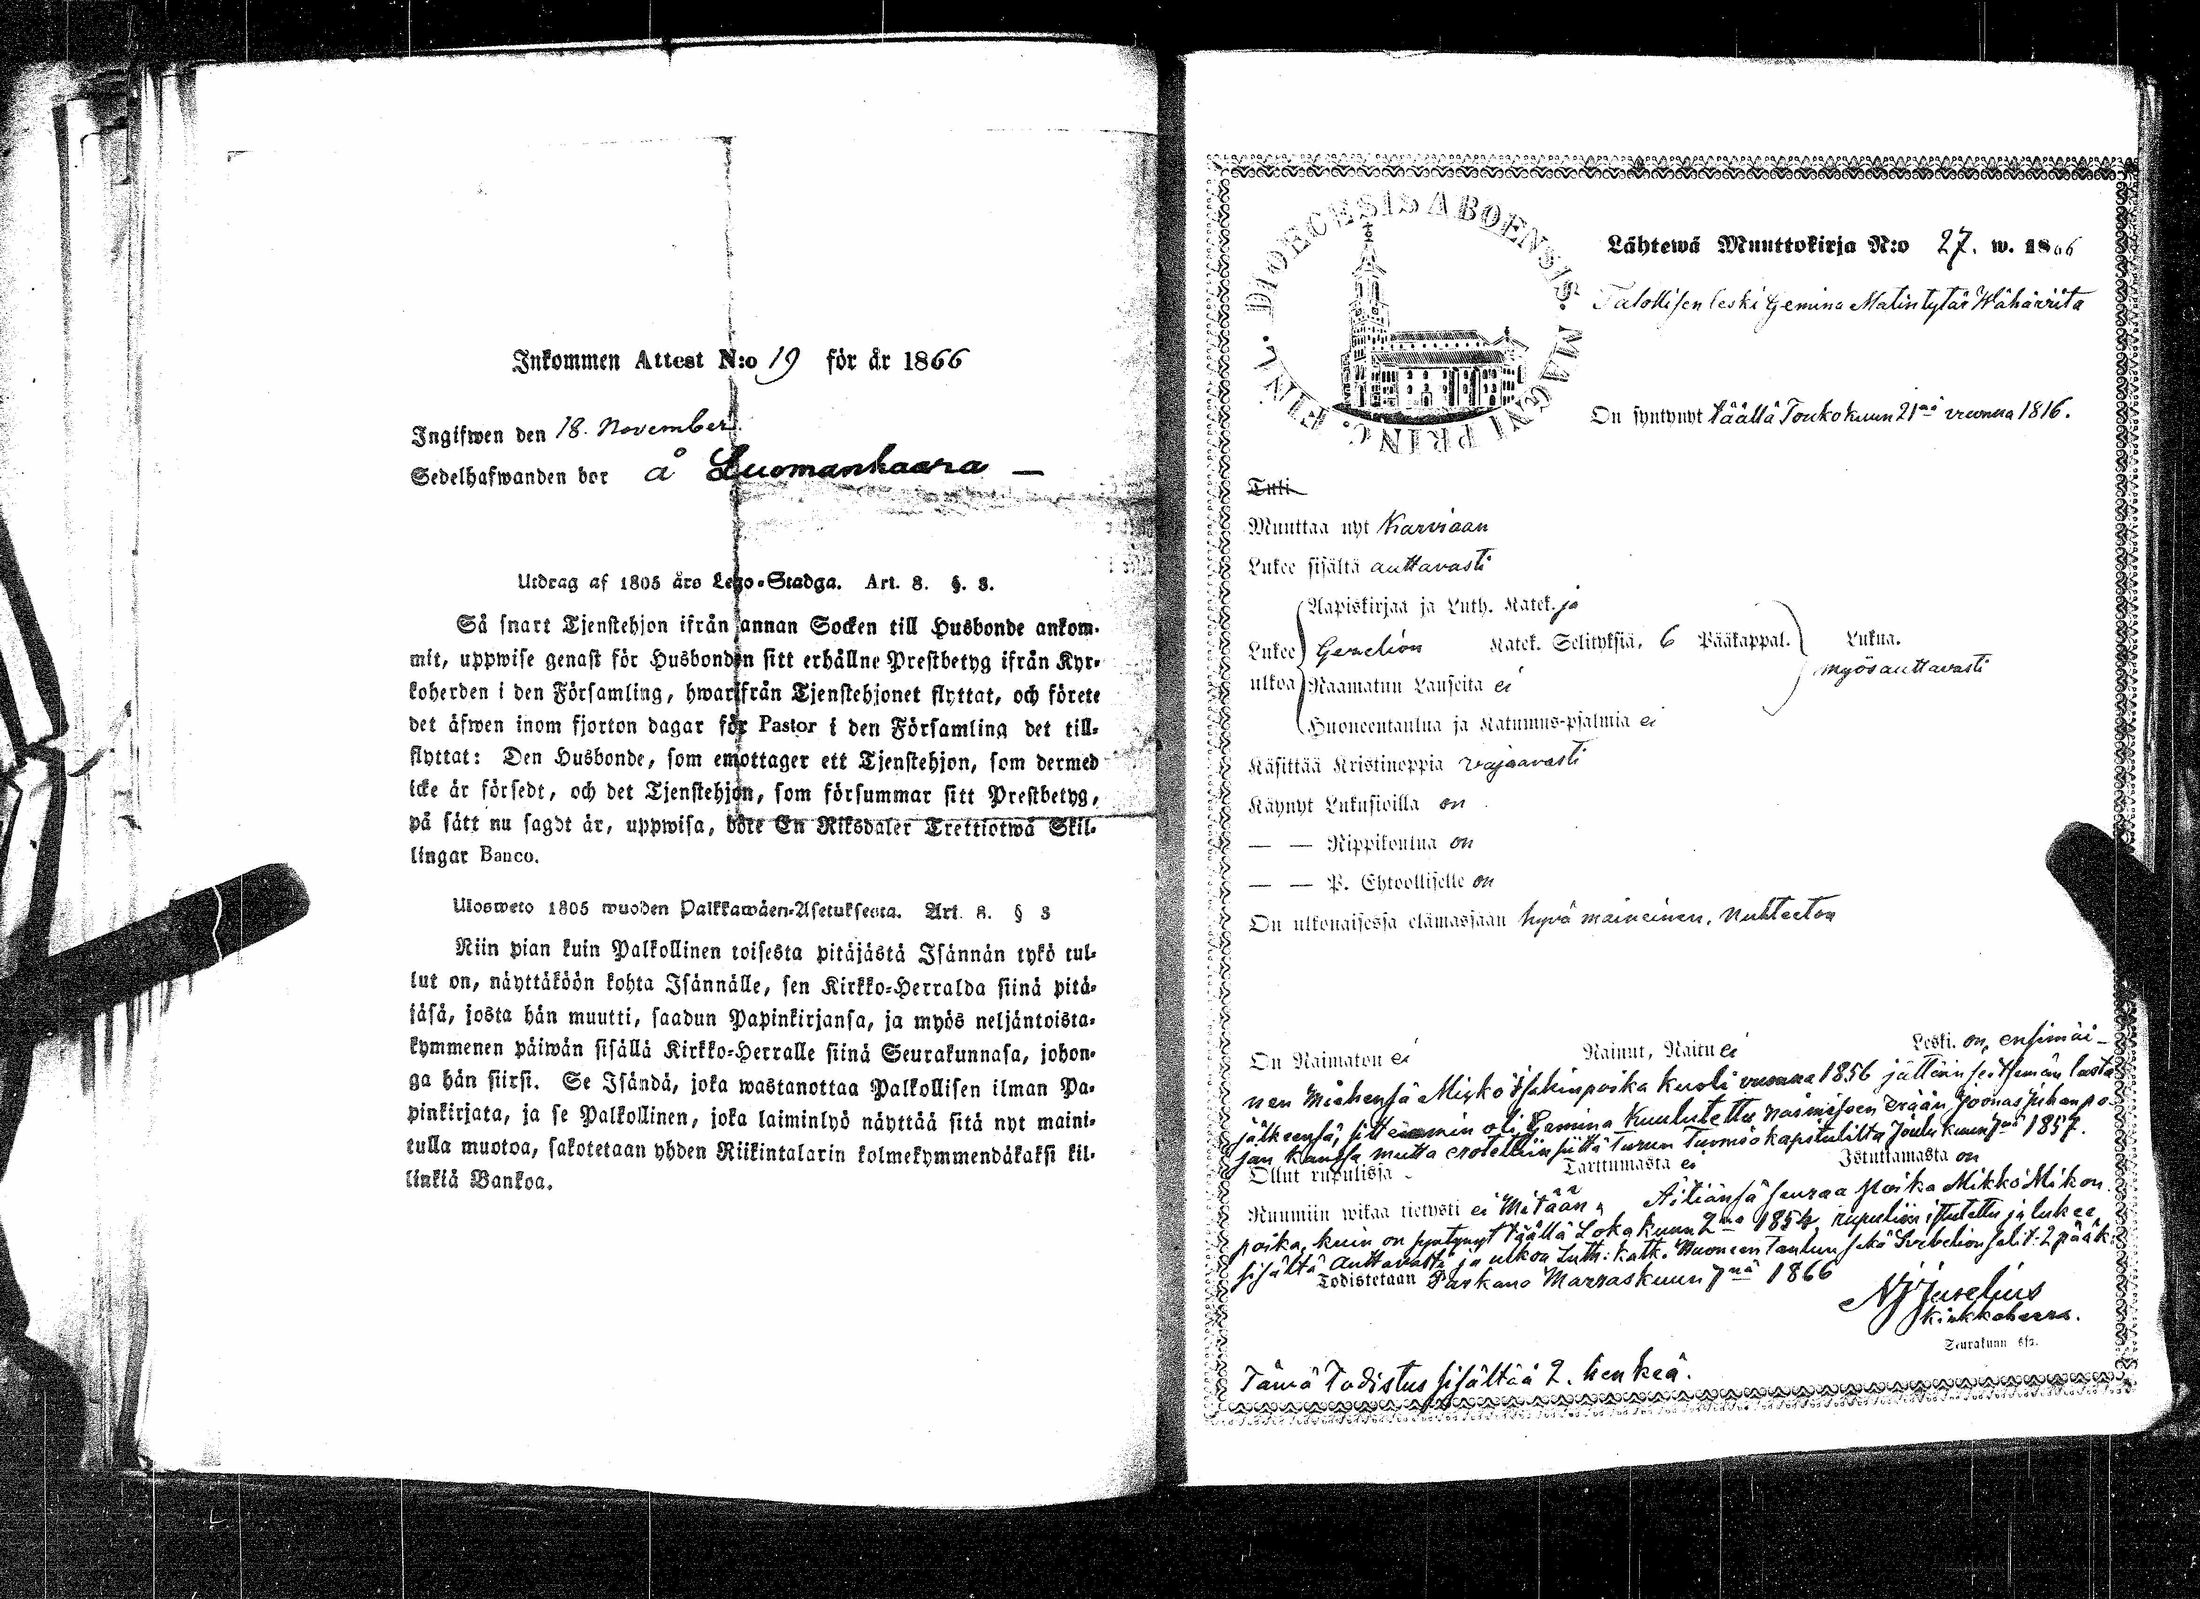 Inkommen Attest N:o 19 för år 1866
Ingifwen den 18. November.
Sedelhafwanden bor å Luomanhaara —
Utdrag af 1805 års Lego-Stadga. Art. 8. §. 3.
Så snart Tjenstehjon ifrån annan Socken till Husbonde ankom-
mit, uppwise genast för Husbonden sitt erhållne Prestbetyg ifrån Kyr-
koherden i den Församling, hwarifrån Tjenstehjonet flyttat, och förete
det äfwen inom fjorton dagar för Pastor i den Församling det till-
flyttat: Den Husbonde, som emottager ett Tjenstehjon, som dermed
icke är försedt, och det Tjenstehjon, som försummar sitt Prestbetyg,
på sätt nu sagdt är, uppwisa, böte En Riksdaler Trettiotwå Skil-
lingar Banco.
Ulosweto 1805 wuoden Palkkawäen-Asetuksesta. Art. 8. § 3
Niin pian kuin Palkollinen toisesta pitäjästä Isännän tykö tul-
lut on, näyttäköön kohta Isännälle, sen Kirkko-Herralda siinä pitä-
jäsä, josta hän muutti, saadun Papinkirjansa, ja myös neljäntoista-
kymmenen päiwän sisällä Kirkko-Herralle siinä Seurakunnasa, johon-
ga hän siirsi. Se Isändä, joka wastanottaa Palkollisen ilman Pa-
pinkirjata, ja se Palkollinen, joka laiminlyö näyttää sitä nyt maini-
tulla muotoa, sakotetaan yhden Riikintalarin kolmekymmendäkaksi kil-
linkiä Bankoa.
DIOECESIS ABOENSIS. MAGNI PRINC. FINL.
Lähtewä Muuttokirja N:o 27. w. 1866
Talollisen leski Gemina Matintytär Wähäriita
On syntynyt täällä Toukokuun 21nä vuonna 1816.
Tuli
Muuttaa nyt Karviaan
Lukee sisältä auttavasti
Aapiskirjaa ja Luth. Katek. ja
Lukee ulkoa Katek. Selityksiä, 6 Pääkappal. Lukua. myös auttavasti
Raamatun Lauseita ei
Huoneentaulua ja Katumus-psalmia ei
Käsittää Kristinoppia vajaavasti
Käynyt Lukusioilla on
— — Rippikoulua on
— — P. Ehtoolliselle on
On ulkonaisessa elämässään hyvä maineinen, nuhteeton
On Naimaton ei Nainut, Naitu ei Leski. on, ensimäi-
nen Miehensä Mikko Isakinpoika kuoli vuonna 1856 jättäin seittemän lasta
jälkeensä, sitte oli Gemina kuulutettu naimiseen erään Joonas Juhanpo-
jan kanssa mutta erotettiin siittä Turun Tuomiokapitulilta Joulukuun 7nä 1857.
Ollut rupulissa - Tarttumasta ei Istuttamasta on
Ruumiin wikaa tietysti ei Mitään. Äitiänsä seuraa poika Mikko Mikon
poika, kuin on syntynyt täällä Lokakuun 2na 1854, rupuliin istutettu ja lukee
sisältä auttavasti ja ulkoa Luth: Katk. Huoneen Taulun sekä Svebelion selit: 2 pääk:
Todistetaan Parkano Marraskuun 7nä 1866
Kirkkoherra.
Seurakunn
Tämä Todistus sisältää 2. henkeä.